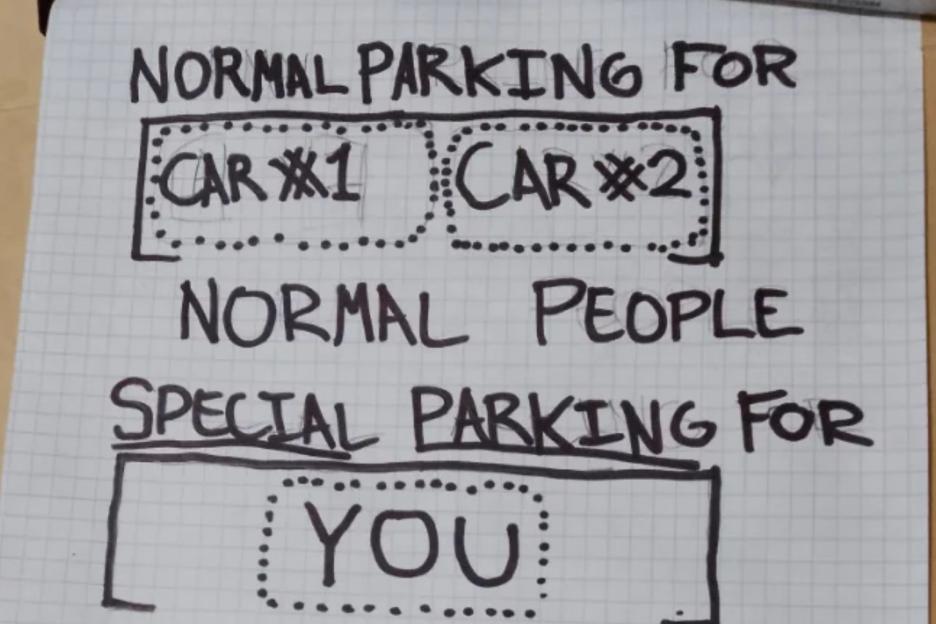 NORMAL PARKING FOR
CAR #1 CAR #2
NORMAL PEOPLE
SPECIAL PARKING FOR
YOU